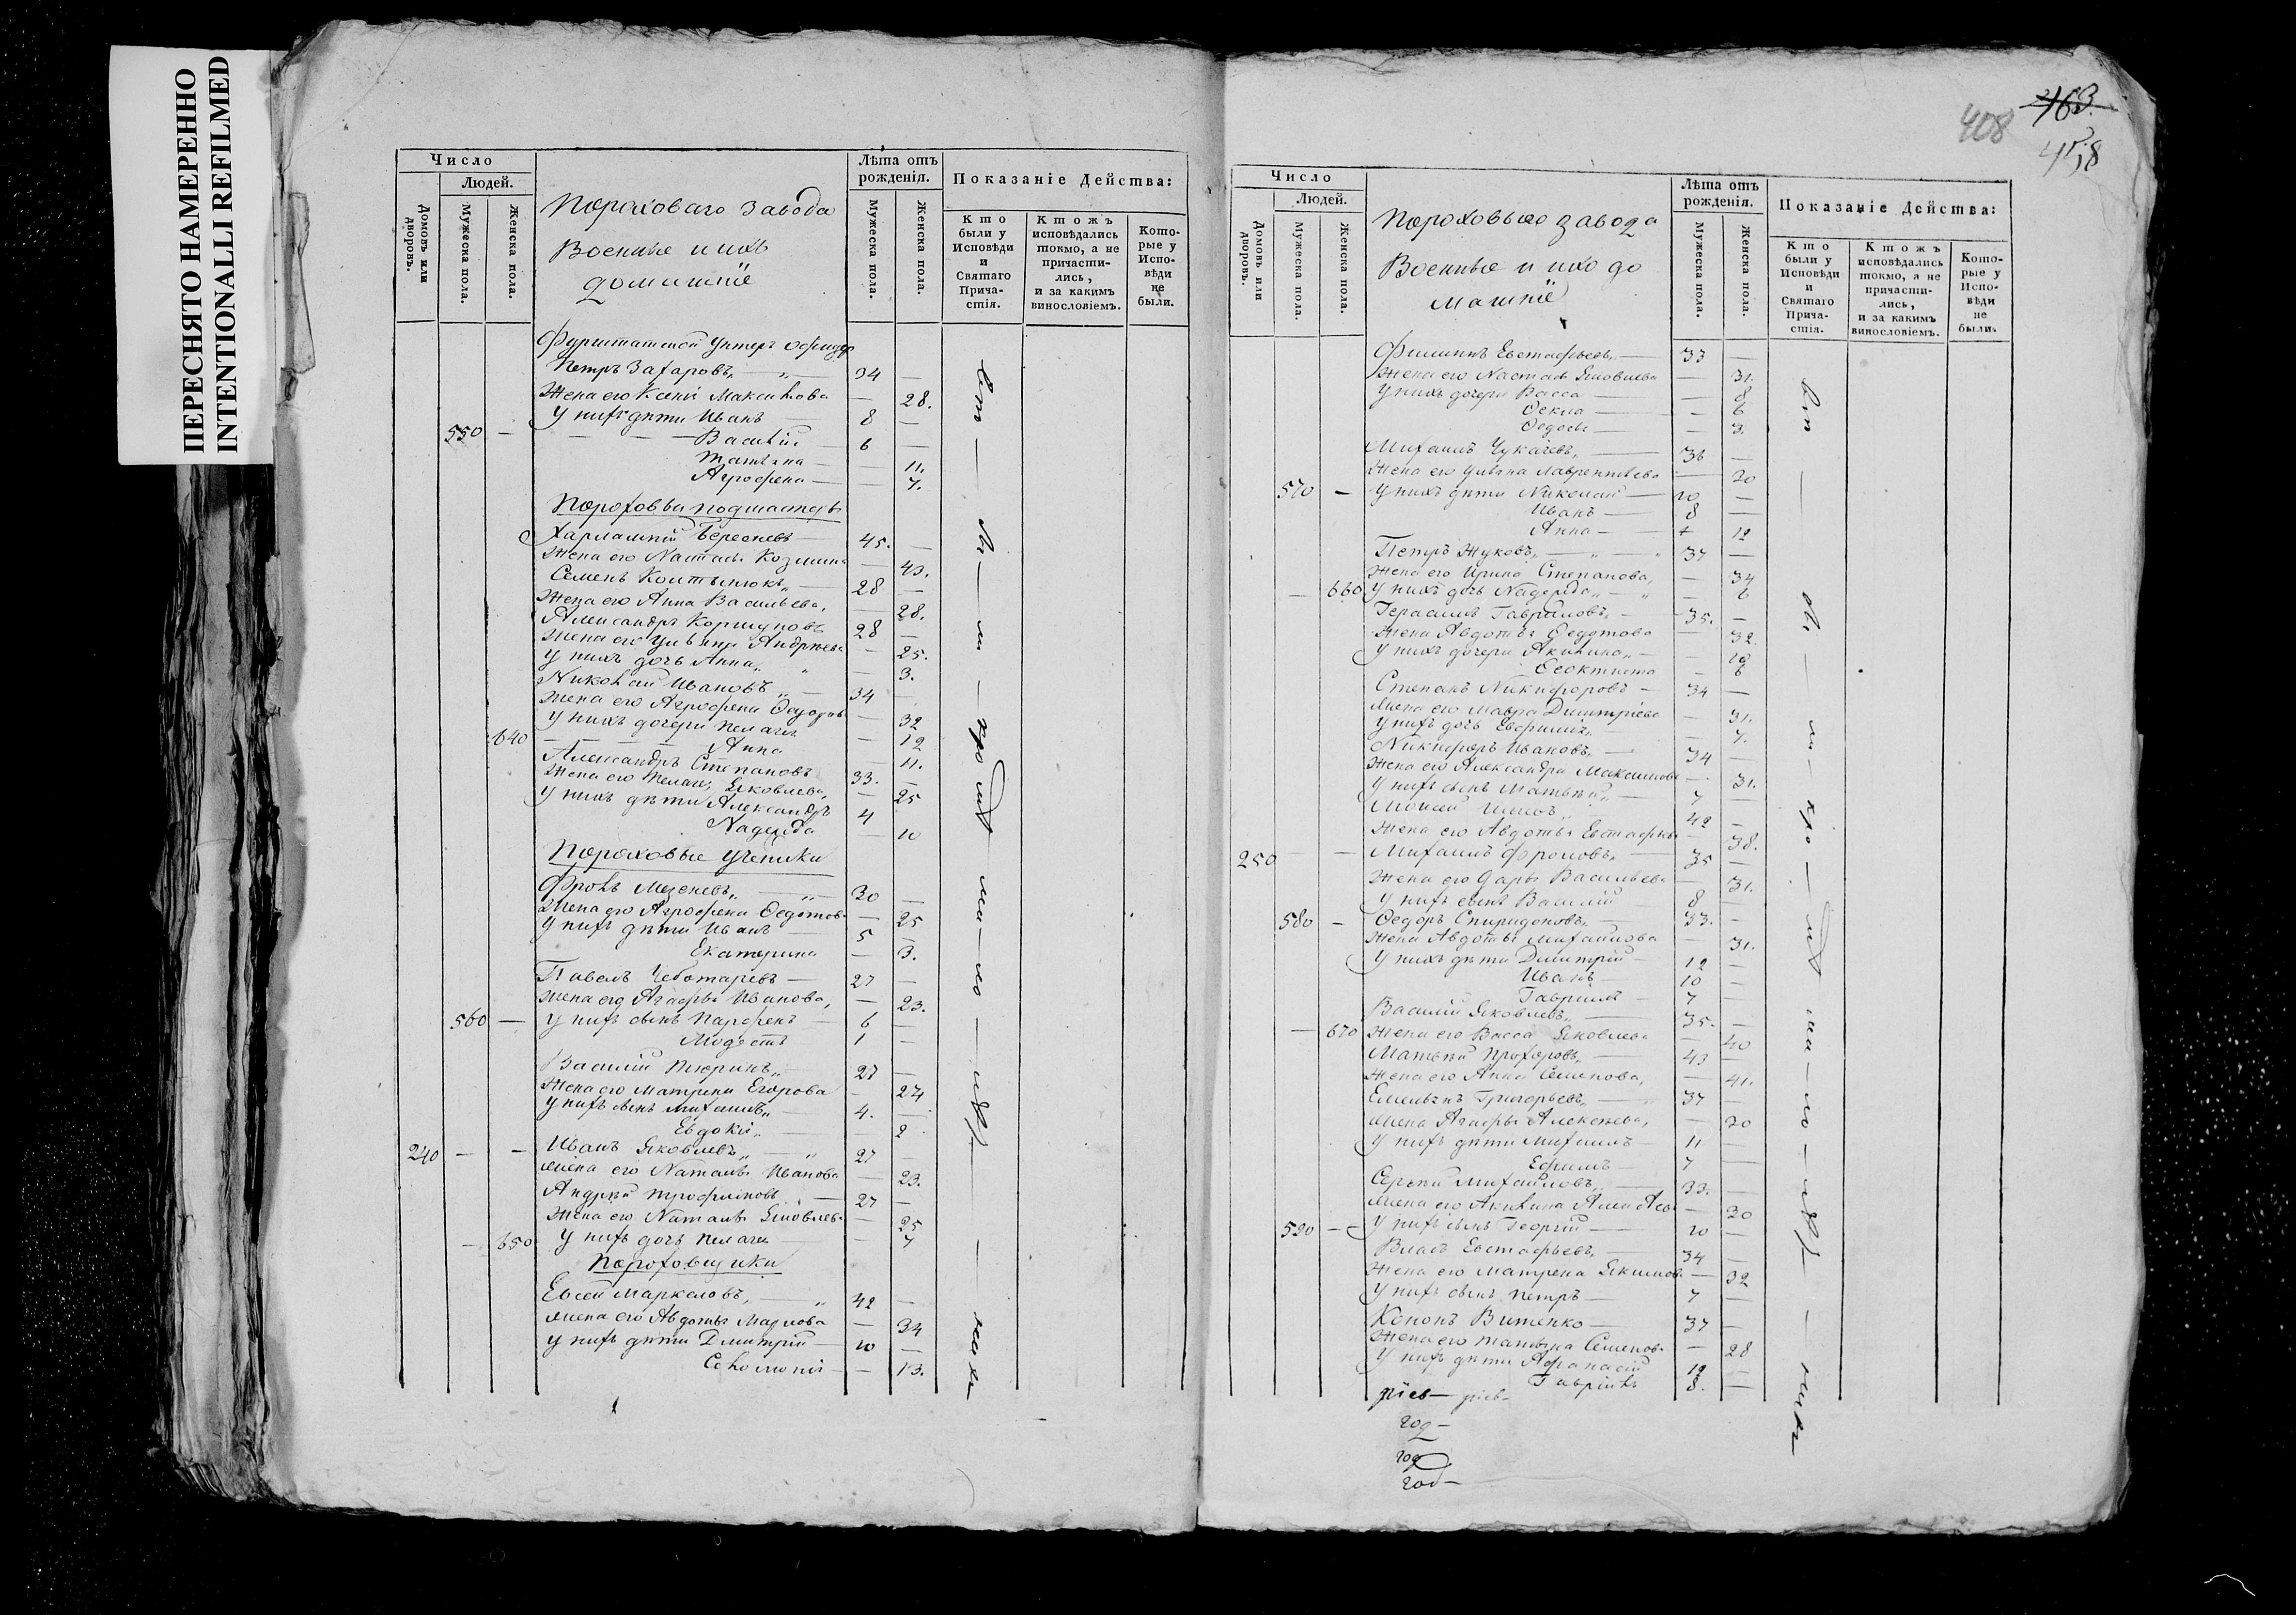 ПЕРЕСНЯТО НАМЕРЕННО
INTENTIONALLI REFILMED
Число
Людей.
Домовъ или дворовъ.
Мужеска пола.
Женска пола.
Пороховаго завода
Военные и ихъ
домашнїе
Лѣта отъ рожденія.
Мужеска пола.
Женска пола.
Показаніе Действа:
Кто были у Исповѣди и Святаго Прича-стія.
Ктожъ исповѣдались токмо, а не причасти-лись, и за какимъ винословіемъ.
Кото-рые у Испо-вѣди не были.
Фурштатской Унтеръ Офицер
Петръ Захаровъ 34 —
Жена его Ксенія Максимова — 28.
У нихъ дѣти Иванъ 8 —
550 — Василій 6 —
Татьяна — 11.
Агрофена — 7.
Пороховыя подмастерья
Харлампій Береснев 45. —
Жена его Наталья Козмина — 43.
Семенъ 28 —
Жена его Анна Васильева, — 28.
Александръ Коршуновъ 28 —
Жена его Ульяна Андреева — 25.
У нихъ дочь Анна — 3.
Николай Ивановъ 34 —
Жена его Агрофена — 32
У нихъ дочери Пелагея — 12
640 Анна — 11.
Александръ Степановъ 33. —
Жена его Пелагея Яковлева, — 25
У нихъ дѣти Александръ 4
Надежда — 10
Пороховые ученики
Фролъ 30 —
Жена его Агрофена Федотов — 25
У нихъ дѣти Иванъ 5 —
Екатерина — 3.
Павелъ Чеботаревъ 27 —
Жена его Агафья Иванова, — 23.
560 — У нихъ сынъ Парфенъ 6 —
Модестъ 1 —
Василій Тюринъ 27 —
Жена его Матрена Егорова — 24
У нихъ сынъ Михаилъ 4. —
Евдокія — 2
240 — — Иванъ Яковлевъ 27 —
Жена его Наталья Иванова — 23.
Андрей Трофимовъ 27 —
Жена его Наталья Яковлев — 25
— 650 У нихъ дочь Пелагея — 7
Пороховщики
Евсей Маркеловъ 42 —
Жена его Авдотья Маркова — 34
У нихъ дѣти Дмитрій 10 —
Соломонія — 13.
408
463.
458
Число
Людей.
Домовъ или дворовъ.
Мужеска пола.
Женска пола.
Пороховые завода
Военные и ихъ до
машнїе
Лѣта отъ рожденія.
Мужеска пола.
Женска пола.
Показаніе Действа:
Кто были у Исповѣди и Святаго Прича-стія.
Ктожъ исповѣдались токмо, а не причасти-лись, и за какимъ винословіемъ.
Кото-рые у Испо-вѣди не были.
Филиппъ Евстафьевъ 33 —
Жена его Наталья Яковлева — 31.
У нихъ дочери Васса — 8
Фекла — 6
Федосья — 3.
Михаилъ Чукачевъ 36 —
Жена его Ульяна Лаврентьева — 30
570 — У нихъ дѣти Николай 10 —
Иванъ 8 —
Анна — 12
Петръ Жуковъ 37 —
Жена его Ирина Степанова, — 34
— 660 У нихъ дочь Надежда — 6
Герасимъ Гавриловъ 35. —
Жена Авдотья Федотова — 32.
У нихъ дочери Акилина — 10
Феоктиста — 6
Степанъ Никифоровъ 34 —
Жена его Мавра Димитріева — 31.
У нихъ дочь Евфимія — 7.
Никифоръ Ивановъ 34 —
Жена его Александра Максимова — 31.
У нихъ сынъ Матвѣй 7 —
Моисей 42 —
Жена его Авдотья Евстафьев — 38.
250 — Михаилъ Фроловъ 35 —
Жена его Дарья Васильева — 31.
У нихъ сынъ Василій 8 —
580 — Федоръ Спиридоновъ 33. —
Жена Авдотья Михайлова — 31.
У нихъ дѣти Димитрій 12 —
Иванъ 10 —
Гавриилъ 7 —
Василій Яковлевъ 35. —
— 670 Жена его Васса Яковлева — 40
Матвѣй Прохоровъ 43 —
Жена его Анна Семенова, — 41.
Емельянъ Григорьевъ 37 —
Жена Агафья Алексѣева, — 30
У нихъ дѣти Михаилъ 11 —
Ефимъ 7 —
Сергѣй Михайловъ 33. —
Жена его Акилина — 30
590 — У нихъ сынъ Георгій 10 —
Власъ Евстафьевъ 34 —
Жена его Матрена Якимов — 32
У нихъ сынъ Петръ 7 —
Кононъ Витенко 37 —
Жена его Татьяна Семенов — 28
У нихъ дѣти Афанасій 12 —
Гавріилъ 8. —
ріев — ріев —
год —
год
год —